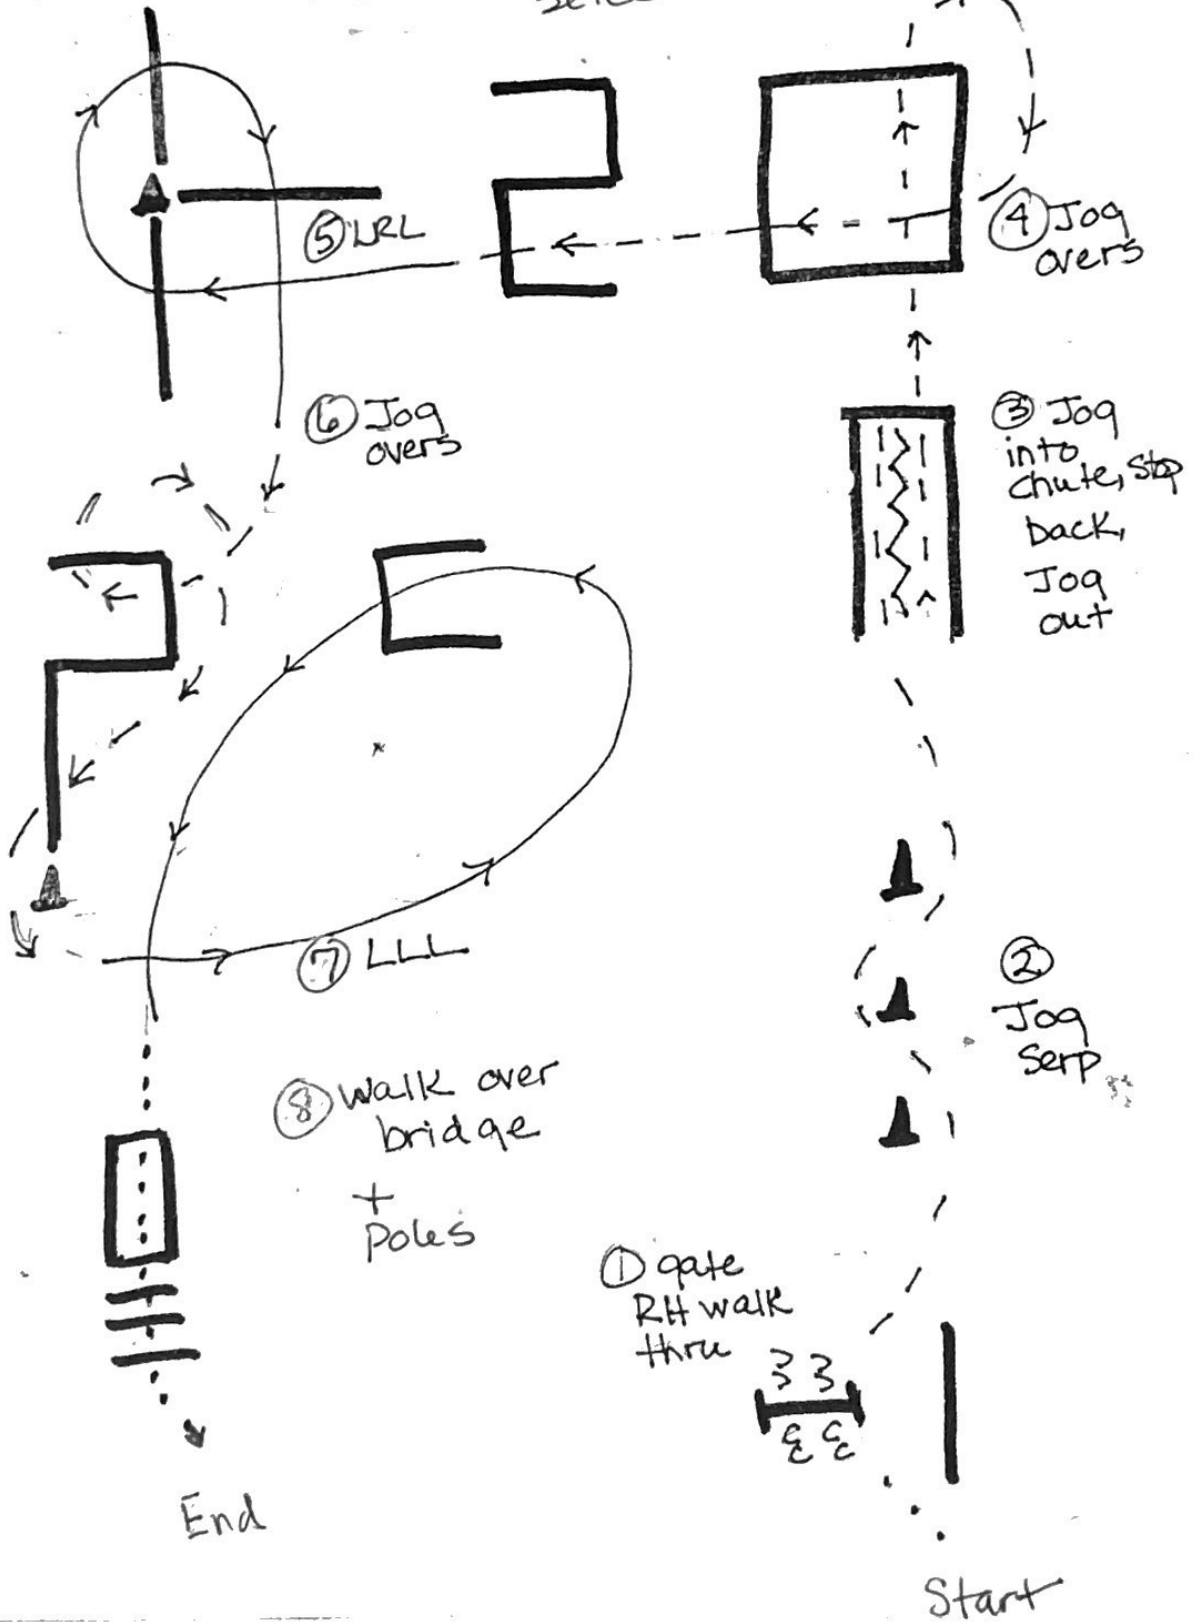 ④ Jog
overs
⑤ LRL
⑥ Jog
overs
③ Jog
into
chute, Stop
back,
Jog
out
⑦ LLL
②
Jog
Serp
⑧ Walk over
bridge
+
Poles
① gate
RH walk
thru
End
Start